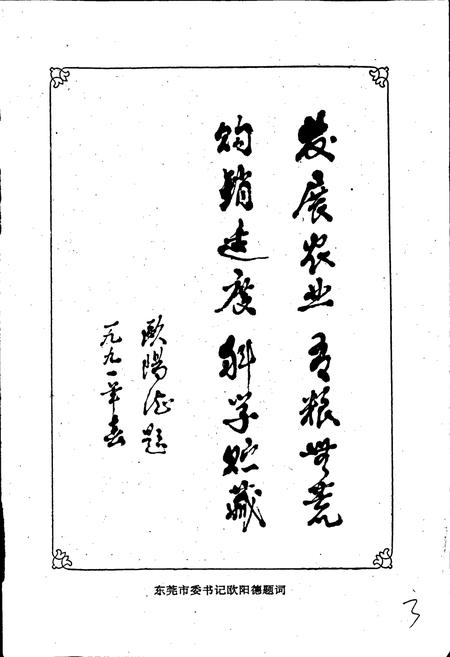 发展农业 有粮无荒
购销适度 科学贮藏
欧阳德题
一九九一年春
东莞市委书记欧阳德题词